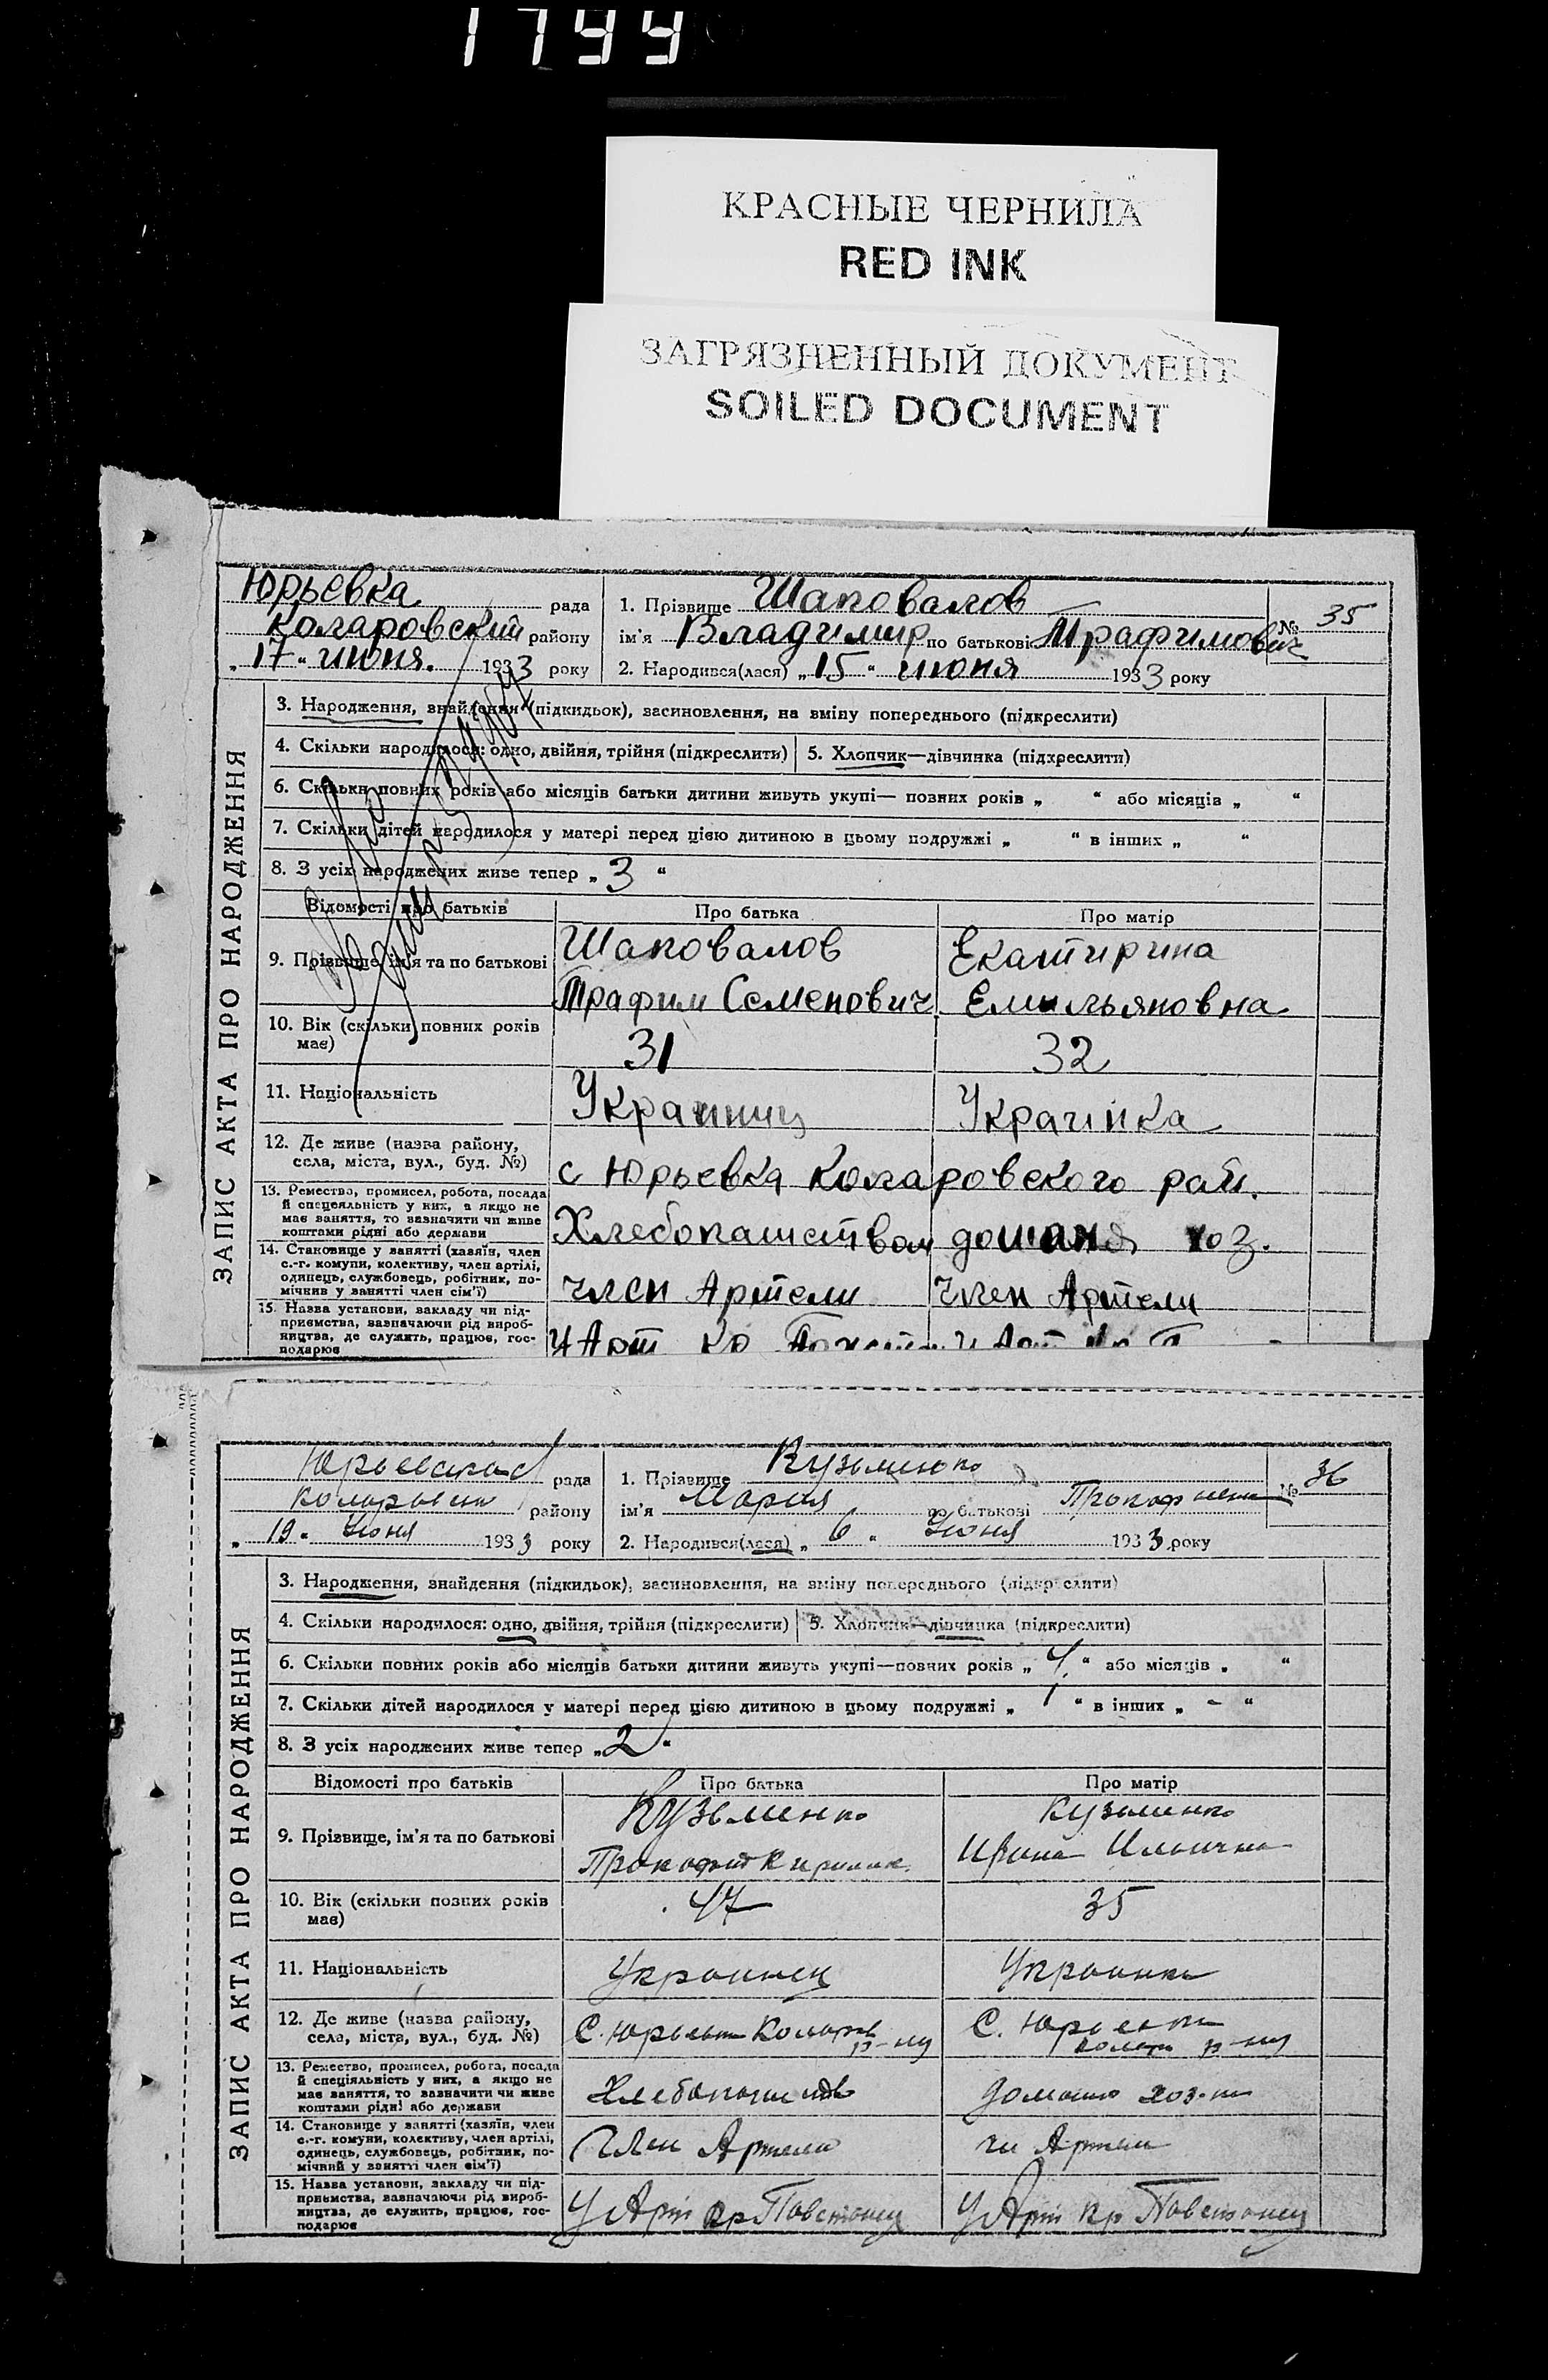 1799
КРАСНЫЕ ЧЕРНИЛА
RED INK
ЗАГРЯЗНЕННЫЙ ДОКУМЕНТ
SOILED DOCUMENT
ЗАПИС АКТА ПРО НАРОДЖЕННЯ
Юрьевка рада
Коларовский району
„17“ июня 1933 року
1. Прізвище Шаповалов
№ 35
ім'я Владимир по батькові Трафимович
2. Народився(лася) „15“ июня 1933 року
3. Народження, знайдення (підкидьок), засиновлення, на зміну попереднього (підкреслити)
4. Скільки народилося: одно, двійня, трійня (підкреслити) 5. Хлопчик—дівчинка (підкреслити)
6. Скільки повних років або місяців батьки дитини живуть укупі— повних років „ “ або місяців „ “
7. Скільки дітей народилося у матері перед цією дитиною в цьому подружжі „ “ в інших „ “
8. З усіх народжених живе тепер „3“
Відомості про батьків Про батька Про матір
9. Прізвище, ім'я та по батькові Шаповалов Екатирина
Трафим Семенович Емильяновна
10. Вік (скільки повних років
має) 31 32
11. Національність Украиниц Украінка
12. Де живе (назва району,
села, міста, вул., буд. №) с Юрьевка Коларовского рай.
13. Ремество, промисел, робота, посада
й спеціяльність у них, а якщо не
має заняття, то зазначити чи живе
коштами рідні або держави Хлебопашеством хоз.
14. Становище у занятті (хазяїн, член
с.-г. комуни, колективу, член артілі,
одинець, службовець, робітник, по-
мічник у занятті член сім'ї) член Артели член Артели
15. Назва установи, закладу чи під-
приємства, зазначаючи рід вироб-
ництва, де служить, працює, гос-
подарює
ЗАПИС АКТА ПРО НАРОДЖЕННЯ
Юрьевская рада
району
„19“ Июня 1933 року
1. Прізвище Кузьменко
№ 36
ім'я Мария по батькові
2. Народився(лася) „6“ Июня 1933 року
3. Народження, знайдення (підкидьок), засиновлення, на зміну попереднього (підкреслити)
4. Скільки народилося: одно, двійня, трійня (підкреслити) 5. Хлопчик—дівчинка (підкреслити)
6. Скільки повних років або місяців батьки дитини живуть укупі—повних років „4“ або місяців „ “
7. Скільки дітей народилося у матері перед цією дитиною в цьому подружжі „1“ в інших „-“
8. З усіх народжених живе тепер „2“
Відомості про батьків Про батька Про матір
9. Прізвище, ім'я та по батькові Кузьменко Кузьменко
Прокофий Ирина Ильична
10. Вік (скільки повних років
має) 47 35
11. Національність Украинец Украинка
12. Де живе (назва району,
села, міста, вул., буд. №) С. С.
13. Ремество, промисел, робота, посада
й спеціяльність у них, а якщо не
має заняття, то зазначити чи живе
коштами рідні або держави
14. Становище у занятті (хазяїн, член
с.-г. комуни, колективу, член артілі,
одинець, службовець, робітник, по-
мічний у занятті член сім'ї) Член Артели чл Артели
15. Назва установи, закладу чи під-
приємства, зазначаючи рід вироб-
ництва, де служить, працює, гос-
подарює У Арт Кр Повстанец У Арт Кр Повстанец